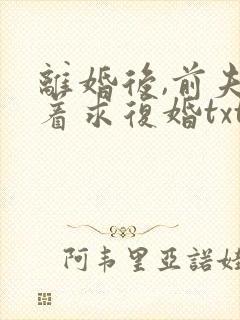 離婚後,前夫
着求復婚txt
阿韦里亞諾娃